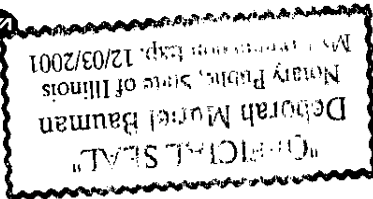 "OFFICIAL SEAL"
Deborah Muriel Bauman
Notary Public, State of Illinois
My Commission Exp. 12/03/2001